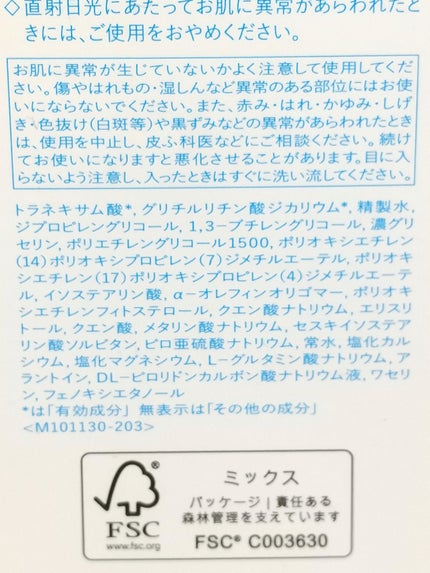 ◇直射日光にあたってお肌に異常があらわれたと
きには、ご使用をおやめください。
お肌に異常が生じていないかよく注意して使用してくだ
さい。傷やはれもの・湿しんなど異常のある部位にはお使
いにならないでください。また、赤み・はれ・かゆみ・しげ
き・色抜け(白斑等)や黒ずみなどの異常があらわれたとき
は、使用を中止し、皮ふ科医などにご相談ください。続け
てお使いになりますと悪化させることがあります。目に入
らないよう注意し、入ったときはすぐに洗い流してください。
トラネキサム酸*, グリチルリチン酸ジカリウム*, 精製水,
ジプロピレングリコール, 1,3-ブチレングリコール, 濃グリ
セリン, ポリエチレングリコール1500, ポリオキシエチレン
(14)ポリオキシプロピレン(7)ジメチルエーテル, ポリオキ
シエチレン(17)ポリオキシプロピレン(4)ジメチルエーテ
ル, イソステアリン酸, α-オレフィンオリゴマー, ポリオキ
シエチレンフィトステロール, クエン酸ナトリウム, エリスリ
トール, クエン酸, メタリン酸ナトリウム, セスキイソステア
リン酸ソルビタン, ピロ亜硫酸ナトリウム, 常水, 塩化カル
シウム, 塩化マグネシウム, L-グルタミン酸ナトリウム, ア
ラントイン, DL-ピロリドンカルボン酸ナトリウム液, ワセリ
ン, フェノキシエタノール
*は「有効成分」 無表示は「その他の成分」
<M101130-203>
®
FSC
www.fsc.org
ミックス
パッケージ|責任ある
森林管理を支えています
FSC® C003630